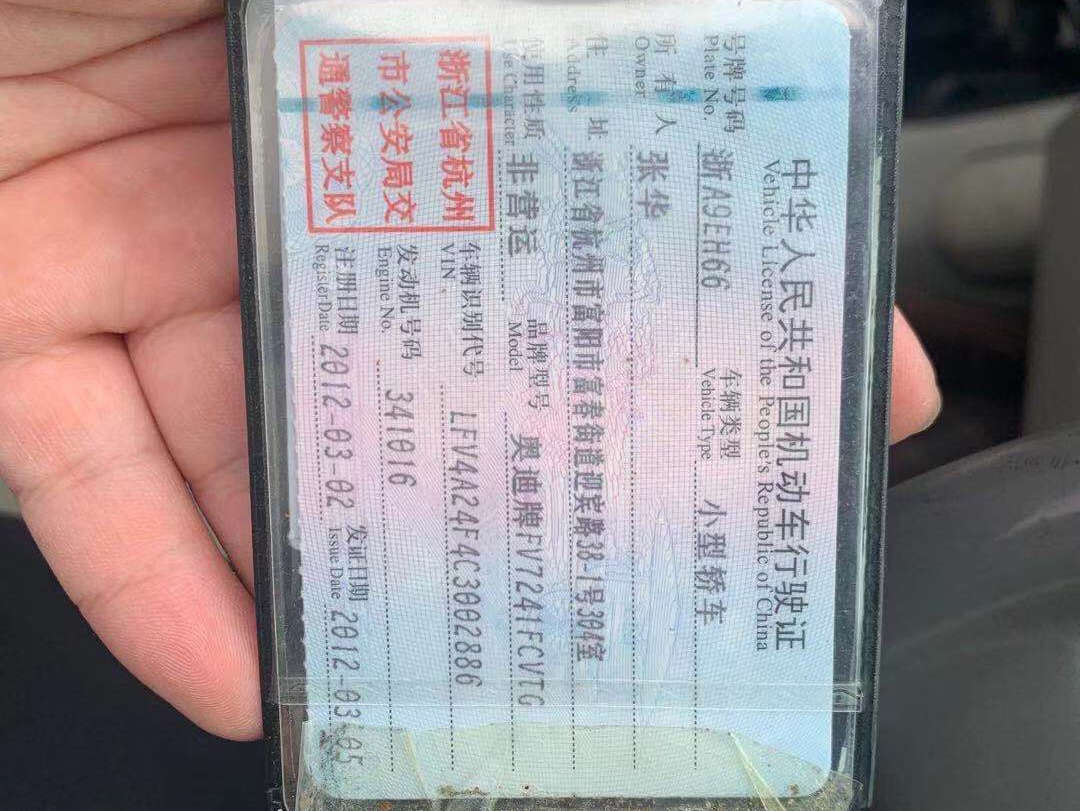 中华人民共和国机动车行驶证
Vehicle License of the People's Republic of China
号牌号码 浙A9EH66 车辆类型 小型轿车
Plate No. Vehicle Type
所有人 张华
Owner
住址 浙江省杭州市富阳市富春街道迎宾路38-1号304室
Address
使用性质 非营运 品牌型号 奥迪牌FV7241FCVTG
Use Character Model
浙江省杭州
市公安局交
通警察支队
车辆识别代号 LFV4A24F4C3002886
VIN
发动机号码 341016
Engine No.
注册日期 2012-03-02 发证日期 2012-03-05
RegisterDate Issue Date